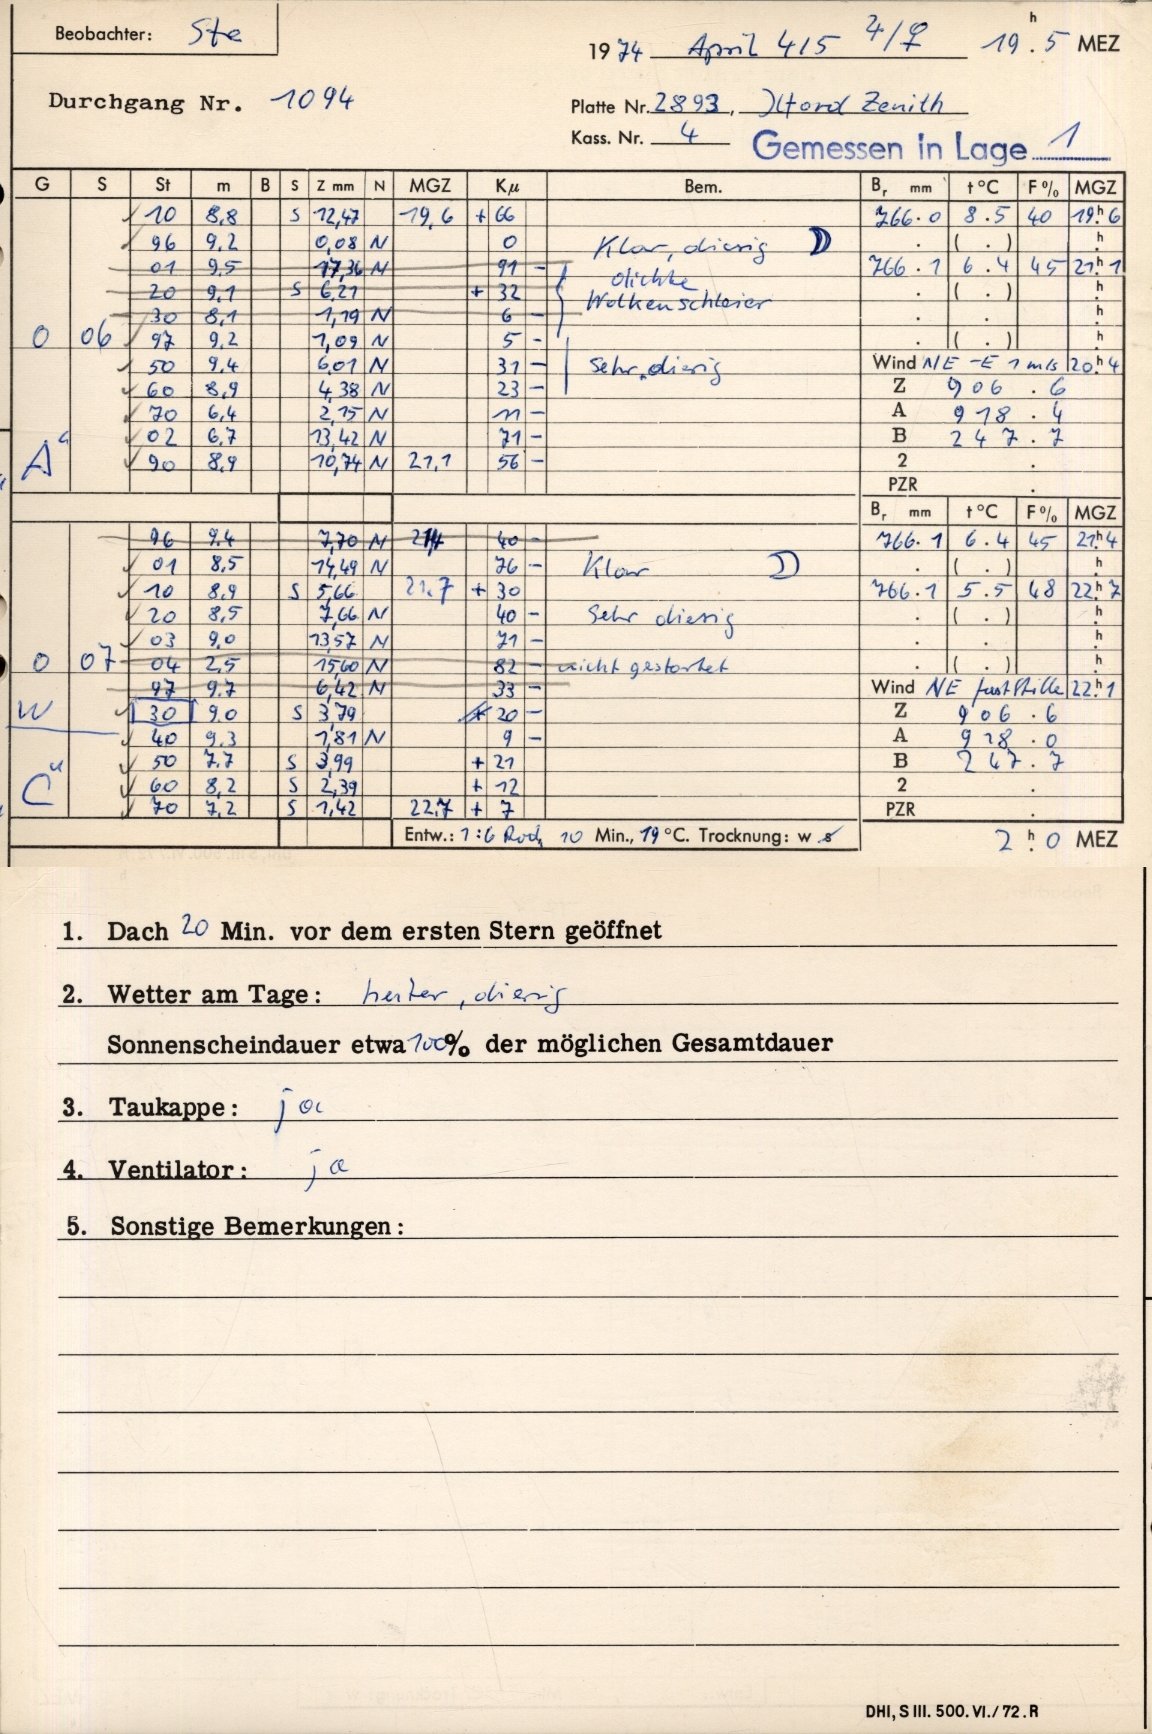 Beobachter: Ste
1974 April 4/5 4/♀ 19h.5 MEZ
Durchgang Nr. 1094
Platte Nr. 2893, Ilford Zenith
Kass. Nr. 4 Gemessen in Lage 1
G S St m B S Z mm N MGZ Kµ Bem. Br mm t °C F % MGZ
10 8,8 S 12,47 19,6 + 66 766.0 8.5 40 19h.6
96 9,2 0,08 N 0 Klar, diesig ( . ) h.
01 9,5 17,36 N 91 - dichte 766.1 6.4 45 21h.1
20 9,1 S 6,21 + 32 Wolkenschleier . ( . ) h.
30 8,1 1,19 N 6 - . . h.
0 06 97 9,2 1,09 N 5 - . ( . ) h.
50 9,4 6,01 N 31 - Sehr diesig Wind NE-E 1 m/s 20h.4
60 8,9 4,38 N 23 - Z 906.6
70 6,4 2,15 N 11 - A 918.4
02 6,7 13,42 N 71 - B 247.7
A 90 8,9 10,74 N 21,1 56 - 2 .
PZR .
Br mm t °C F % MGZ
96 9,4 7,70 N 40 - 766.1 6.4 45 21h.4
01 8,5 14,49 N 76 - Klar . ( . ) h.
10 8,9 S 5,66 21,7 + 30 766.1 5.5 48 22h.7
20 8,5 7,66 N 40 - Sehr diesig . ( . ) h.
03 9,0 13,57 N 71 - . . h.
0 07 04 2,5 15,60 N 82 - nicht gestartet . ( . ) h.
97 9,7 6,42 N 33 - Wind NE fast Stille 22h.1
W 30 9,0 S 3,79 + 20 Z 906.6
40 9,3 1,81 N 9 - A 918.0
50 7,7 S 3,99 + 21 B 247.7
C 60 8,2 S 2,39 + 12 2 .
70 7,2 S 1,42 22,7 + 7 PZR .
Entw.: 1:6 Rod, 10 Min., 19 °C. Trocknung: w s 2h.0 MEZ
1. Dach 20 Min. vor dem ersten Stern geöffnet
2. Wetter am Tage: heiter, diesig
Sonnenscheindauer etwa 100% der möglichen Gesamtdauer
3. Taukappe: ja
4. Ventilator: ja
5. Sonstige Bemerkungen:
DHI, S III. 500. VI./72. R